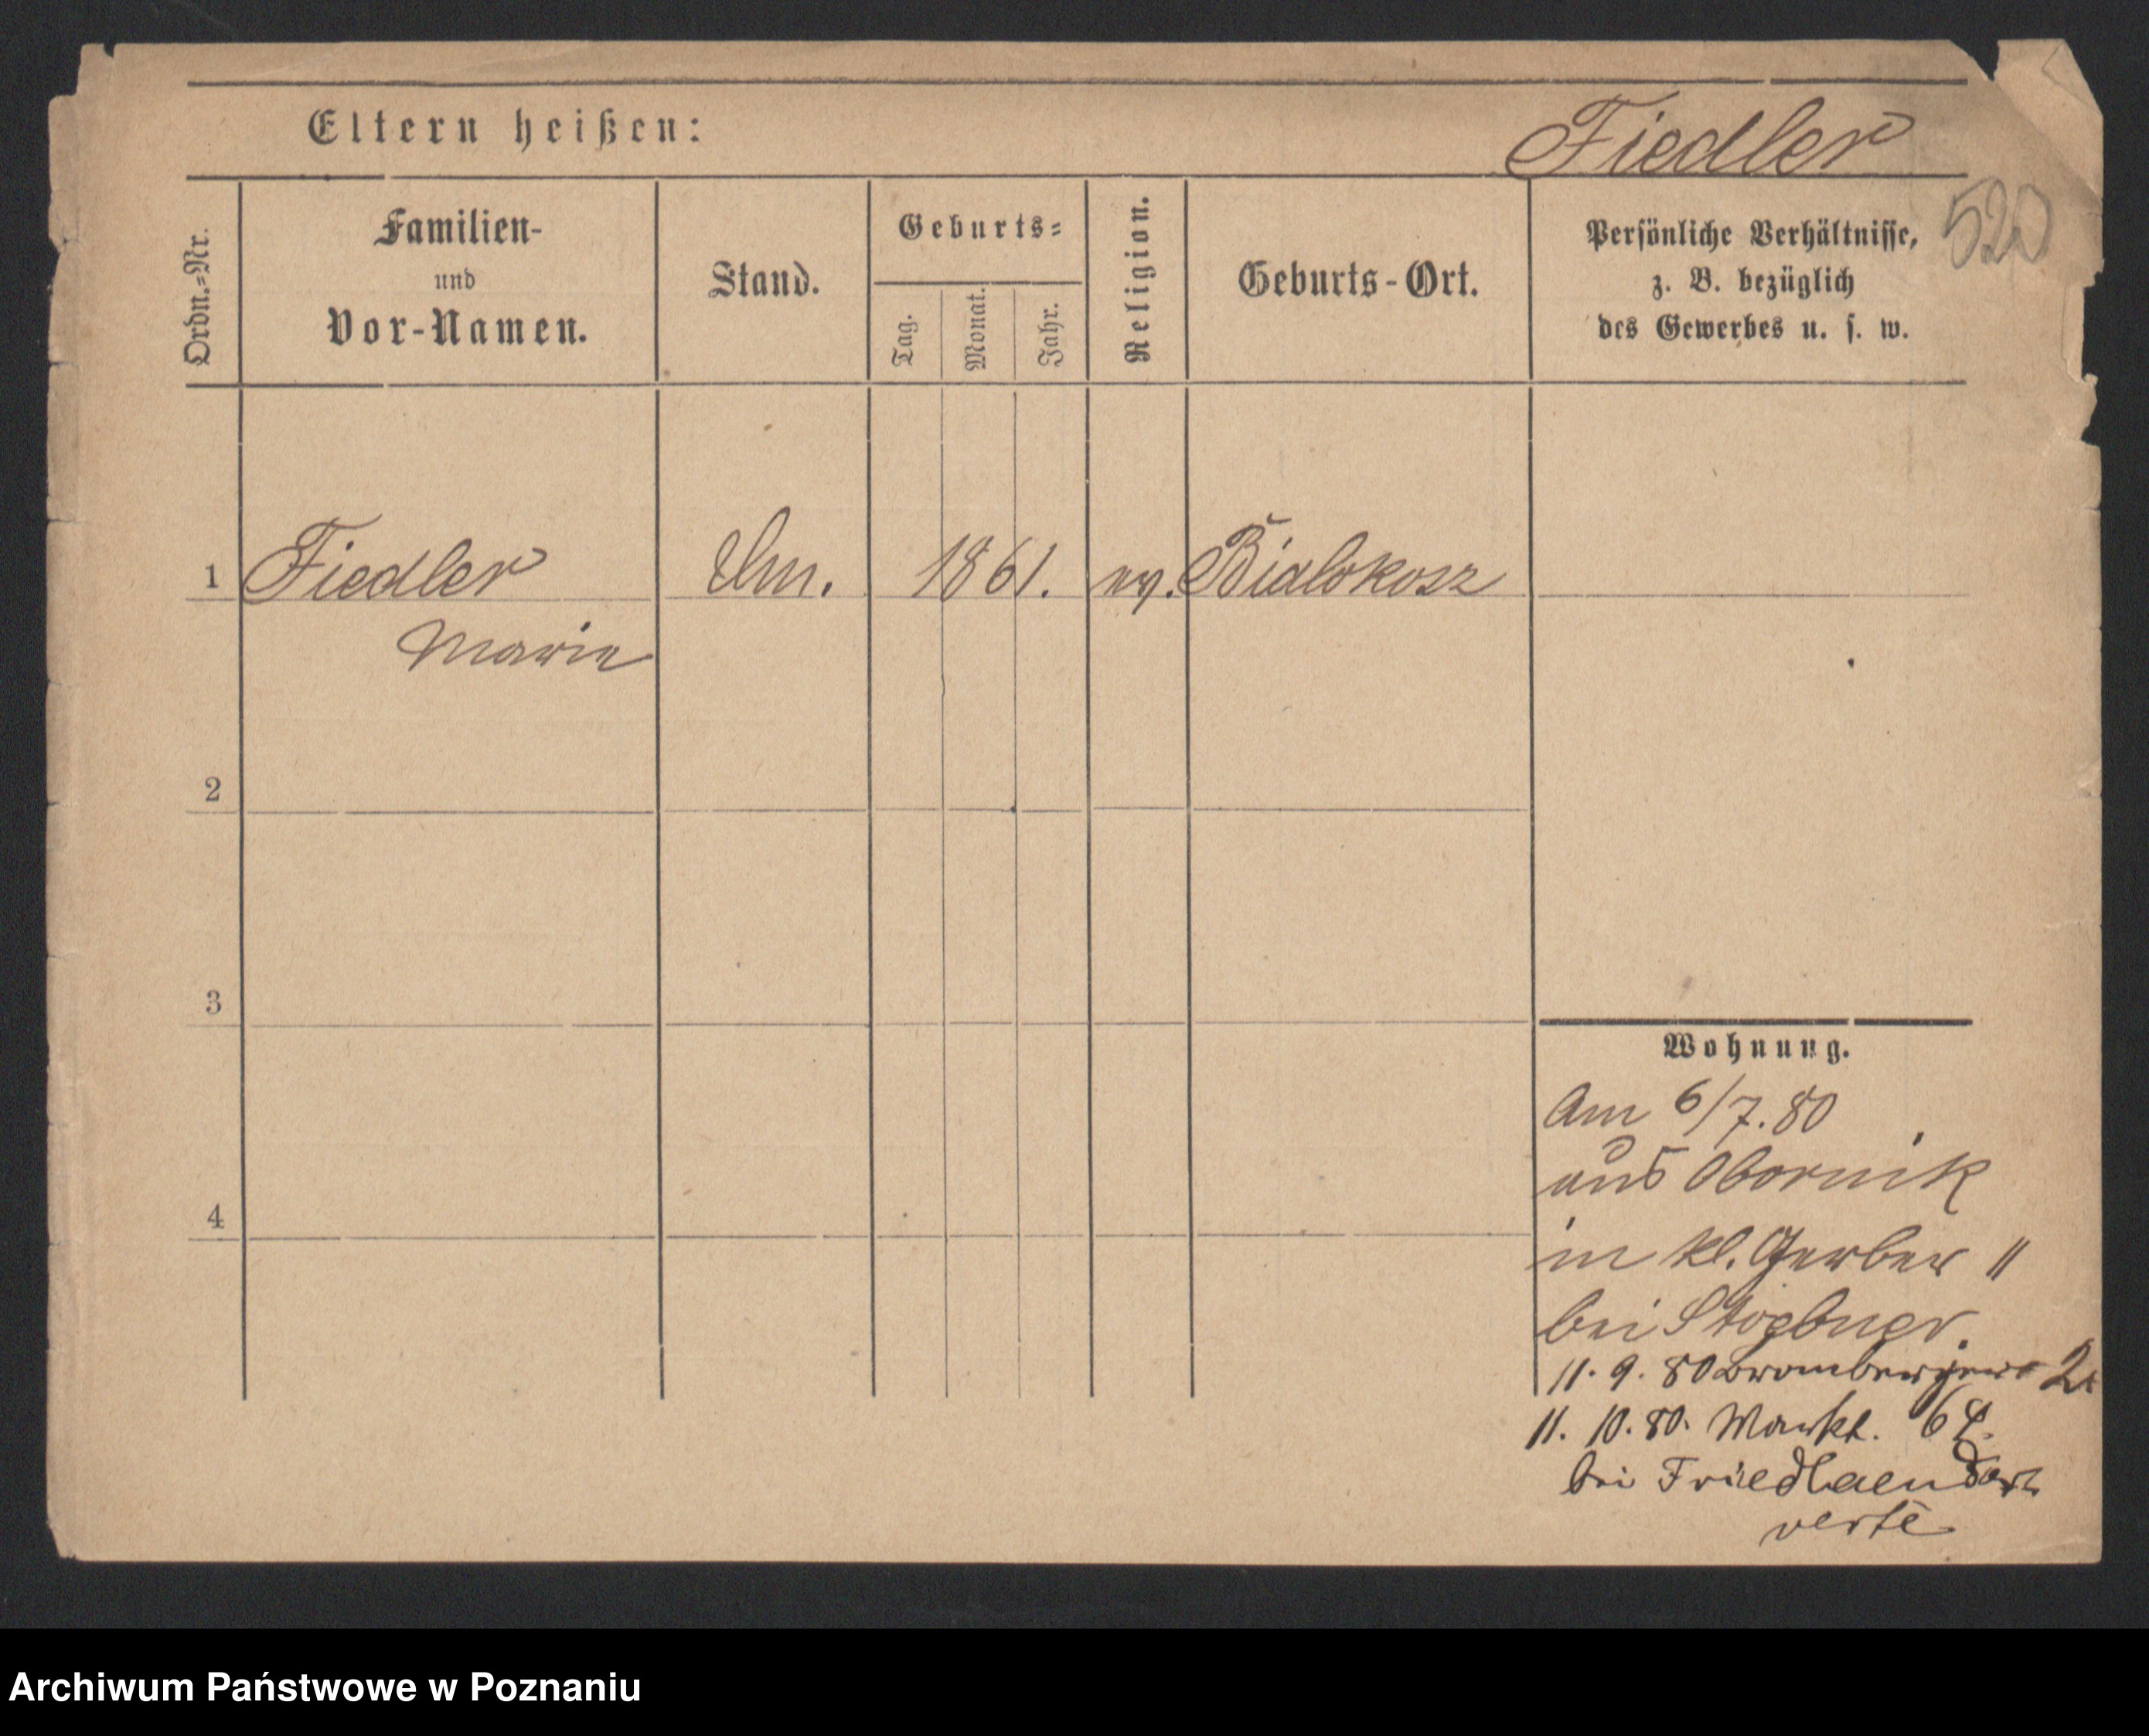 Eltern heißen:
Fiedler
520
Ordn.-Nr.
Familien-
und
Vor-Namen.
Stand.
Geburts-
Tag.
Monat.
Jahr.
Religion.
Geburts-Ort.
Persönliche Verhältnisse,
z. B. bezüglich
des Gewerbes u. s. w.
1 Fiedler 1861. ev. Bialokosz
Marie
2
3
4
Wohnung.
Am 6/7.80
aus Obornik
in kl. Gerber 11
bei
11. 9. 80 Bromberger 2
11. 10. 80. Markt. 64.
bei Friedlaender
verte
Archiwum Państwowe w Poznaniu